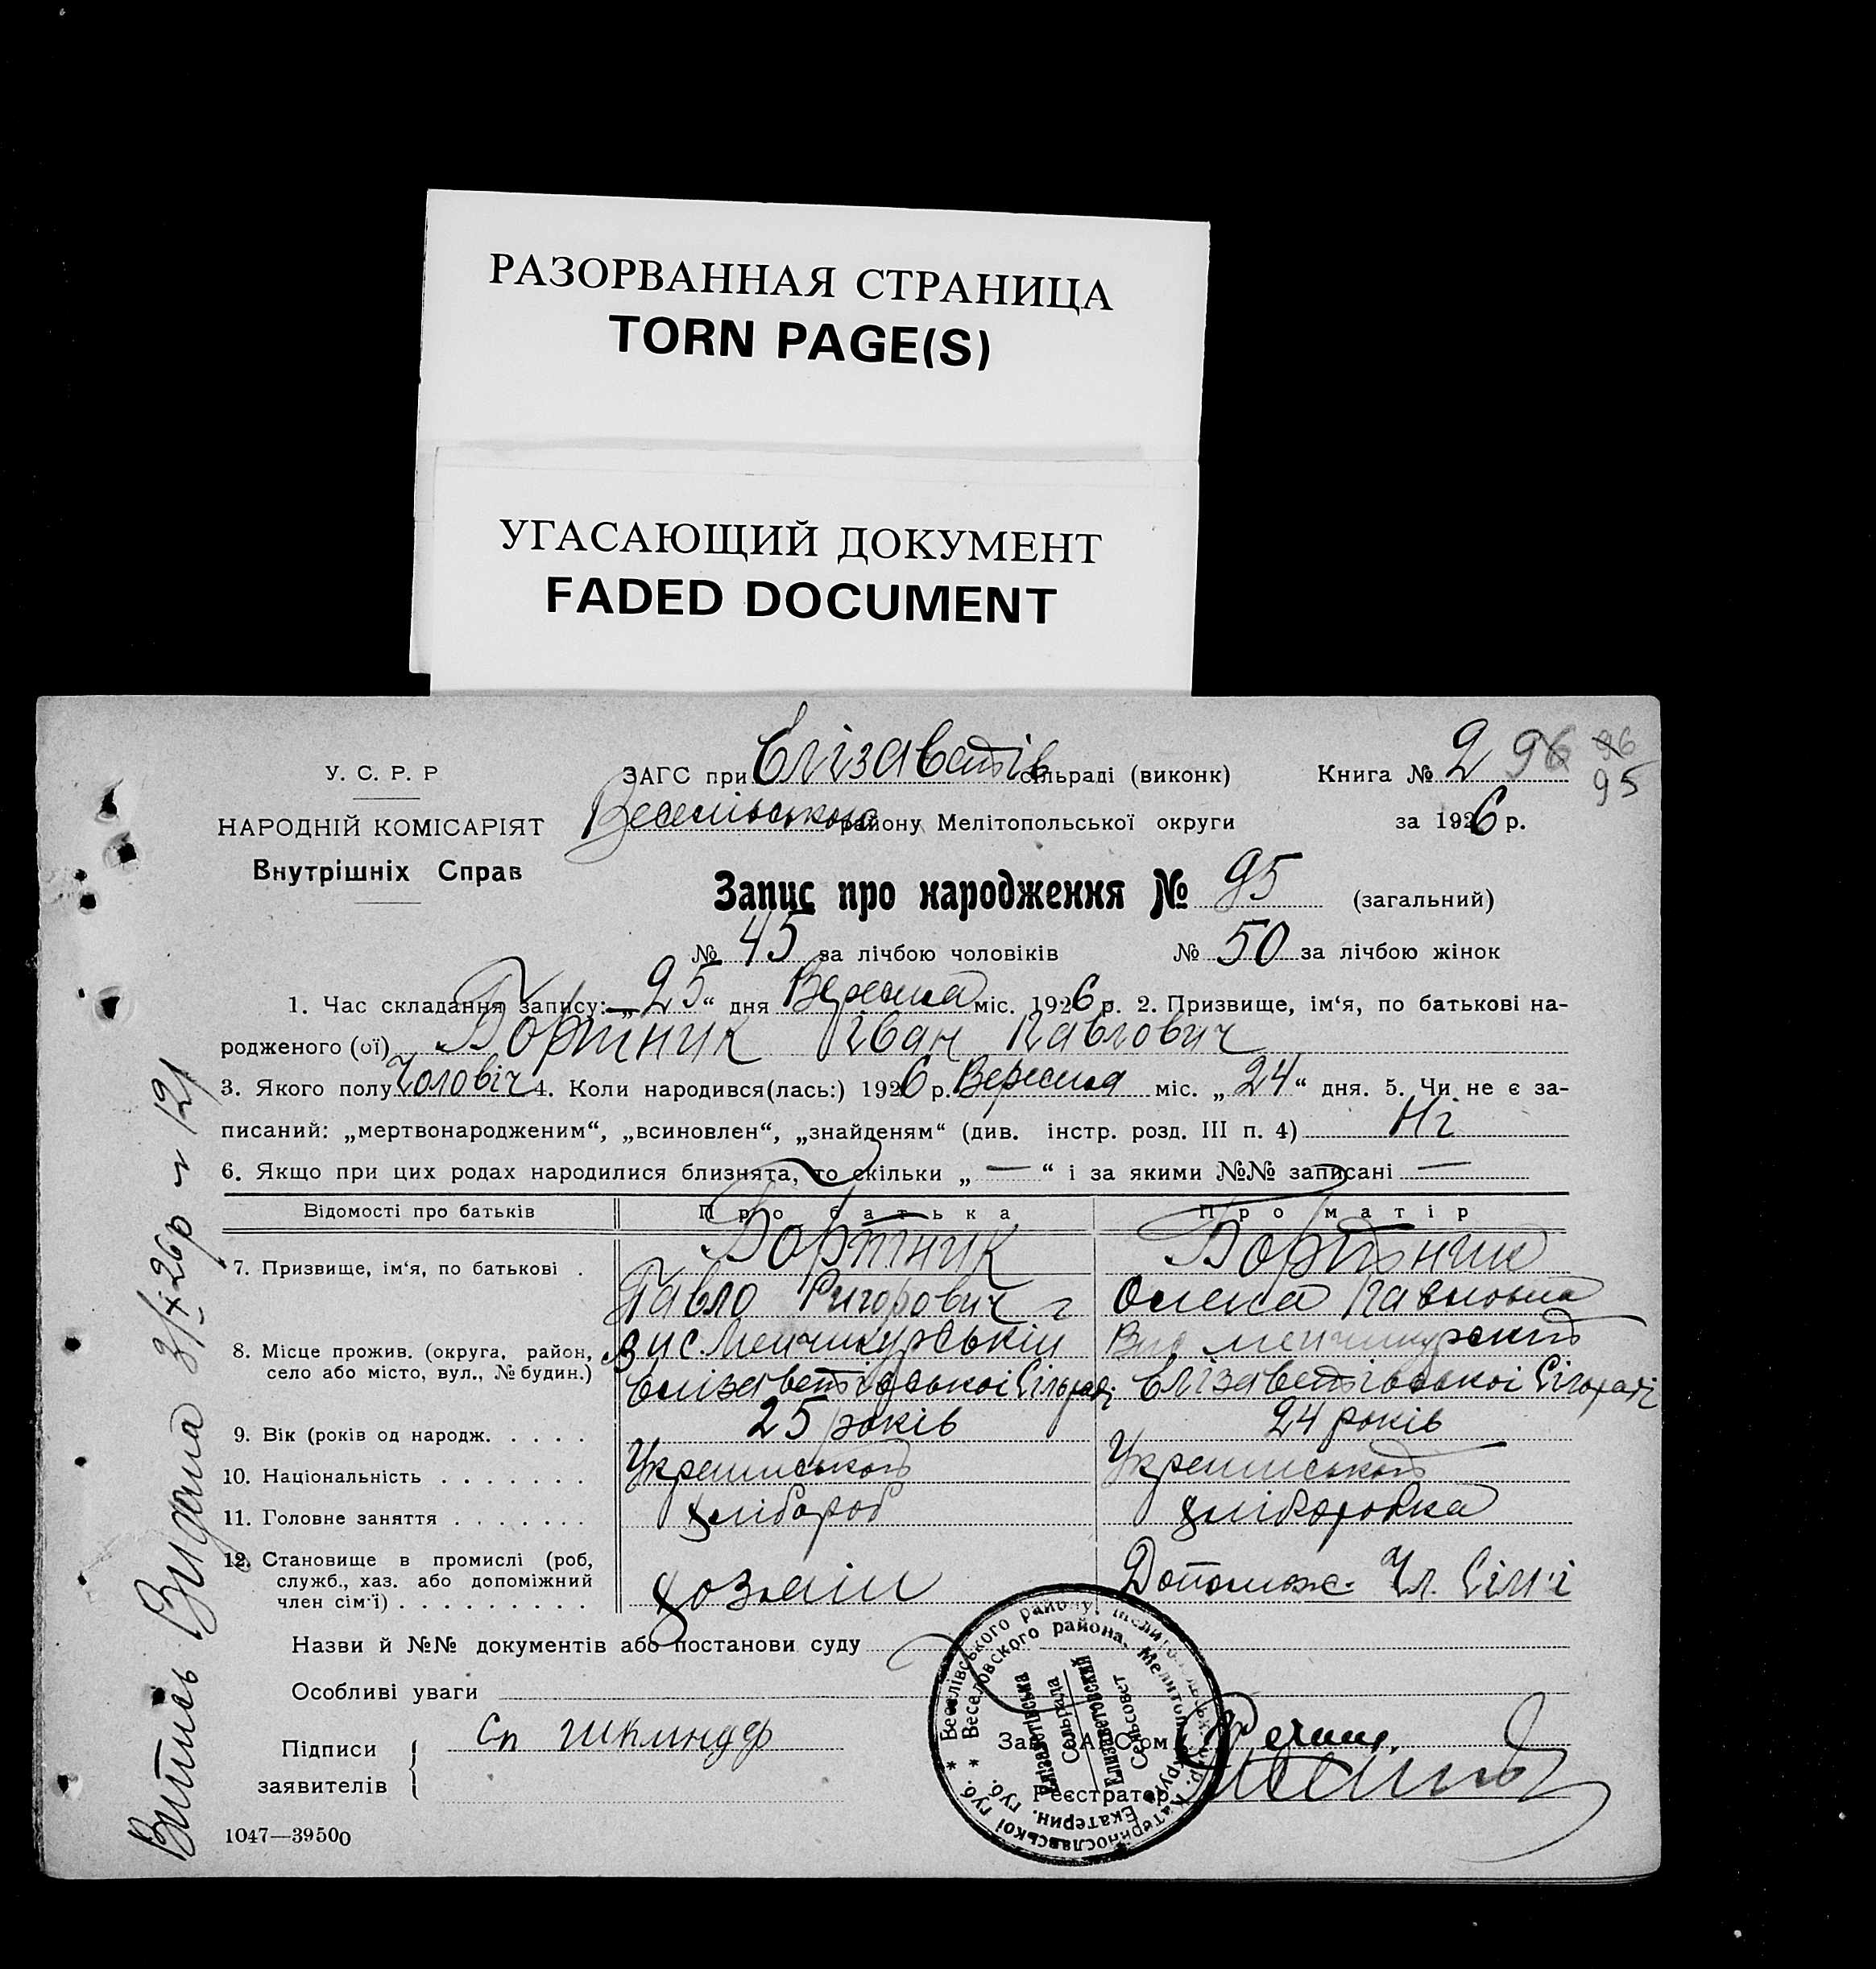 РАЗОРВАННАЯ СТРАНИЦА
TORN PAGE(S)
УГАСАЮЩИЙ ДОКУМЕНТ
FADED DOCUMENT
У. С. Р. Р
НАРОДНІЙ КОМІСАРІЯТ
Внутрішніх Справ
ЗАГС при Єлізаветів сільраді (виконк) Книга № 2 96 96
95
Веселівського району Мелітопольської округи за 1926 р.
Запис про народження № 95 (загальний)
№ 45 за лічбою чоловіків № 50 за лічбою жінок
1. Час складання запису: „25“ дня Вересня міс. 1926 р. 2. Призвище, ім‘я, по батькові на-
родженого (ої) Бортник Іван Павлович
3. Якого полу Чоловіч 4. Коли народився(лась:) 1926 р. Вересня міс. „24“ дня. 5. Чи не є за-
писаний: „мертвонародженим“, „всиновлен“, „знайденям“ (див. інстр. розд. III п. 4) Ні
6. Якщо при цих родах народилися близнята, то скільки „—“ і за якими №№ записані —
Відомості про батьків Про батька Про матір
7. Призвище, ім‘я, по батькові . Бортник Бортник
Павло Григорович Олена Павловна
8. Місце прожив. (округа, район, село або місто, вул., № будин.) в с. Менчикурській
Єлізаветівської Сільраді Єлізаветівської Сільраді
9. Вік (років од народж. . . . . 25 років 24 років
10. Національність . . . . . . . Украинського Украинського
11. Головне заняття . . . . . . . хлібороб хліборобка
12. Становище в промислі (роб, служб., хаз. або допоміжний член сім‘ї) . . . . . . . . . хозяин Допомож. Чл. Сім'і
Назви й №№ документів або постанови суду
Особливі уваги
Підписи
заявителів
Зав. ЗАГСом
Реєстратор
1047—39500
* Веселівського району, Мелітопольськ. окр. Катеринославської губ.
* Веселовского района, Мелитоп. округа Екатерин. губ.
Єлізаветівська
Сельрада
Елизаветовский
Сельсовет
Витяг Видана 3/X 26р № 121